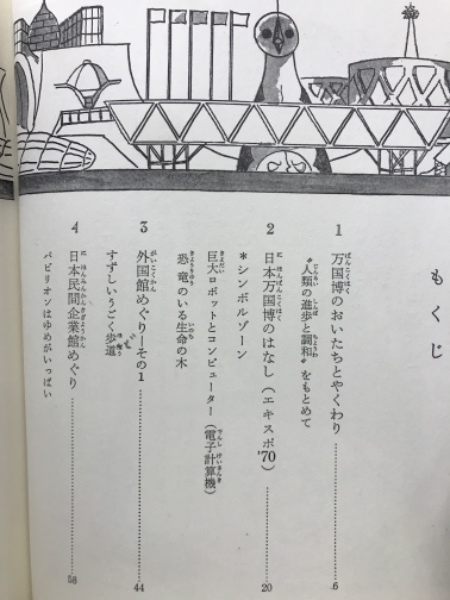 もくじ
1 万国博のおいたちとやくわり 6
〝人類の進歩と調和〟をもとめて
2 日本万国博のはなし(エキスポ'70) 20
*シンボルゾーン
巨大ロボットとコンピューター(電子計算機)
恐竜のいる生命の木
3 外国館めぐり―その1 44
すずしいうごく歩道
4 日本民間企業館めぐり 58
パビリオンはゆめがいっぱい